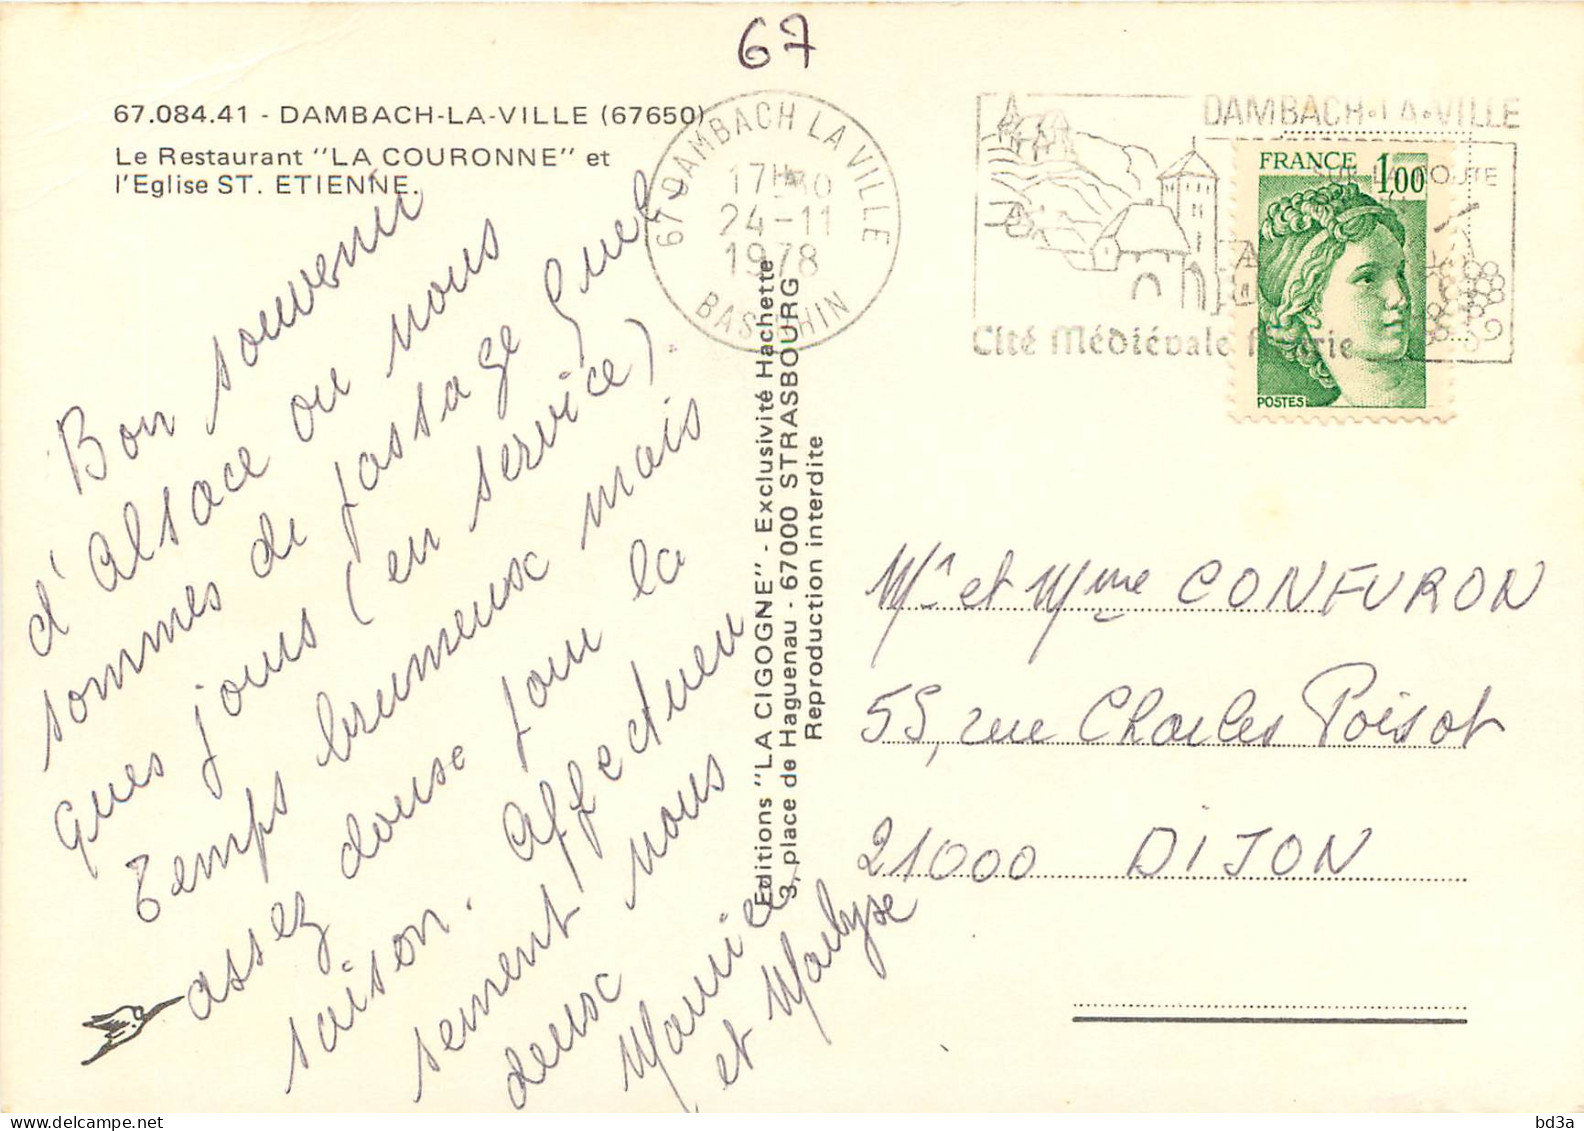 67
67.084.41 - DAMBACH-LA-VILLE (67650)
Le Restaurant "LA COURONNE" et
l'Eglise ST. ETIENNE.
67 DAMBACH LA VILLE
17H30
24-11
1978
BAS-RHIN
DAMBACH-LA-VILLE
SUR LA ROUTE
Cité Médiévale
FRANCE 1,00
POSTES
Bon souvenir
d'Alsace ou nous
sommes de passage quel-
ques jours (en service)
Temps brumeux mais
assez douse pour la
saison. Affectueu
sement nous
deuse
Maurice
et Marlyse
Editions "LA CIGOGNE" - Exclusivité Hachette
3, place de Haguenau - 67000 STRASBOURG
Reproduction interdite
Mr et Mme CONFURON
55, rue Charles Poisot
21000 DIJON
delcampe.net
bd3a